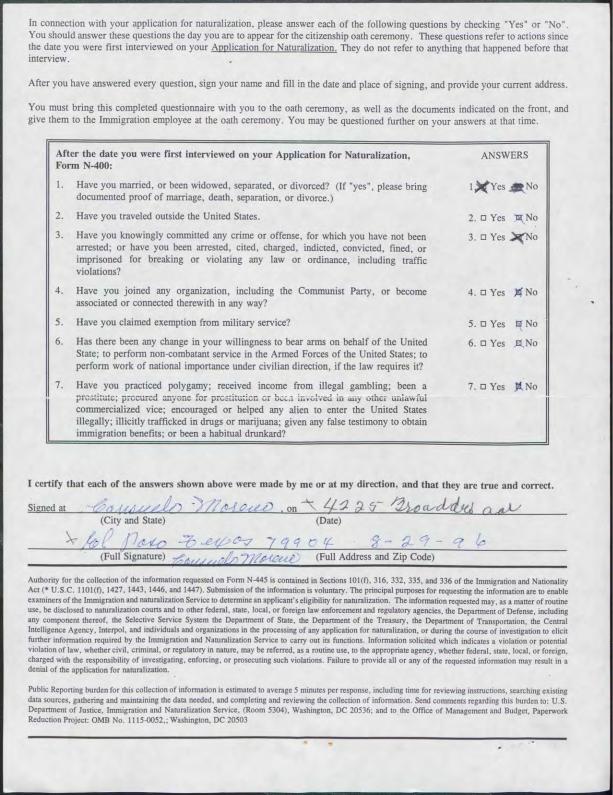 In connection with your application for naturalization, please answer each of the following questions by checking "Yes" or "No".
You should answer these questions the day you are to appear for the citizenship oath ceremony. These questions refer to actions since
the date you were first interviewed on your Application for Naturalization. They do not refer to anything that happened before that
interview.
After you have answered every question, sign your name and fill in the date and place of signing, and provide your current address.
You must bring this completed questionnaire with you to the oath ceremony, as well as the documents indicated on the front, and
give them to the Immigration employee at the oath ceremony. You may be questioned further on your answers at that time.
After the date you were first interviewed on your Application for Naturalization, ANSWERS
Form N-400:
1. Have you married, or been widowed, separated, or divorced? (If "yes", please bring 1. Yes No
documented proof of marriage, death, separation, or divorce.)
2. Have you traveled outside the United States. 2. □ Yes No
3. Have you knowingly committed any crime or offense, for which you have not been 3. □ Yes No
arrested; or have you been arrested, cited, charged, indicted, convicted, fined, or
imprisoned for breaking or violating any law or ordinance, including traffic
violations?
4. Have you joined any organization, including the Communist Party, or become 4. □ Yes No
associated or connected therewith in any way?
5. Have you claimed exemption from military service? 5. □ Yes No
6. Has there been any change in your willingness to bear arms on behalf of the United 6. □ Yes No
State; to perform non-combatant service in the Armed Forces of the United States; to
perform work of national importance under civilian direction, if the law requires it?
7. Have you practiced polygamy; received income from illegal gambling; been a 7. □ Yes No
prostitute; procured anyone for prostitution or been involved in any other unlawful
commercialized vice; encouraged or helped any alien to enter the United States
illegally; illicitly trafficked in drugs or marijuana; given any false testimony to obtain
immigration benefits; or been a habitual drunkard?
I certify that each of the answers shown above were made by me or at my direction, and that they are true and correct.
Signed at Consuelo Moreno, on x 4225 Broaddus
(City and State) (Date)
x Paso Texas 79904 8-29-96
(Full Signature) Consuelo Moreno (Full Address and Zip Code)
Authority for the collection of the information requested on Form N-445 is contained in Sections 101(f), 316, 332, 335, and 336 of the Immigration and Nationality
Act (* U.S.C. 1101(f), 1427, 1443, 1446, and 1447). Submission of the information is voluntary. The principal purposes for requesting the information are to enable
examiners of the Immigration and naturalization Service to determine an applicant's eligibility for naturalization. The information requested may, as a matter of routine
use, be disclosed to naturalization courts and to other federal, state, local, or foreign law enforcement and regulatory agencies, the Department of Defense, including
any component thereof, the Selective Service System the Department of State, the Department of the Treasury, the Department of Transportation, the Central
Intelligence Agency, Interpol, and individuals and organizations in the processing of any application for naturalization, or during the course of investigation to elicit
further information required by the Immigration and Naturalization Service to carry out its functions. Information solicited which indicates a violation or potential
violation of law, whether civil, criminal, or regulatory in nature, may be referred, as a routine use, to the appropriate agency, whether federal, state, local, or foreign,
charged with the responsibility of investigating, enforcing, or prosecuting such violations. Failure to provide all or any of the requested information may result in a
denial of the application for naturalization.
Public Reporting burden for this collection of information is estimated to average 5 minutes per response, including time for reviewing instructions, searching existing
data sources, gathering and maintaining the data needed, and completing and reviewing the collection of information. Send comments regarding this burden to: U.S.
Department of Justice, Immigration and Naturalization Service, (Room 5304), Washington, DC 20536; and to the Office of Management and Budget, Paperwork
Reduction Project: OMB No. 1115-0052,; Washington, DC 20503